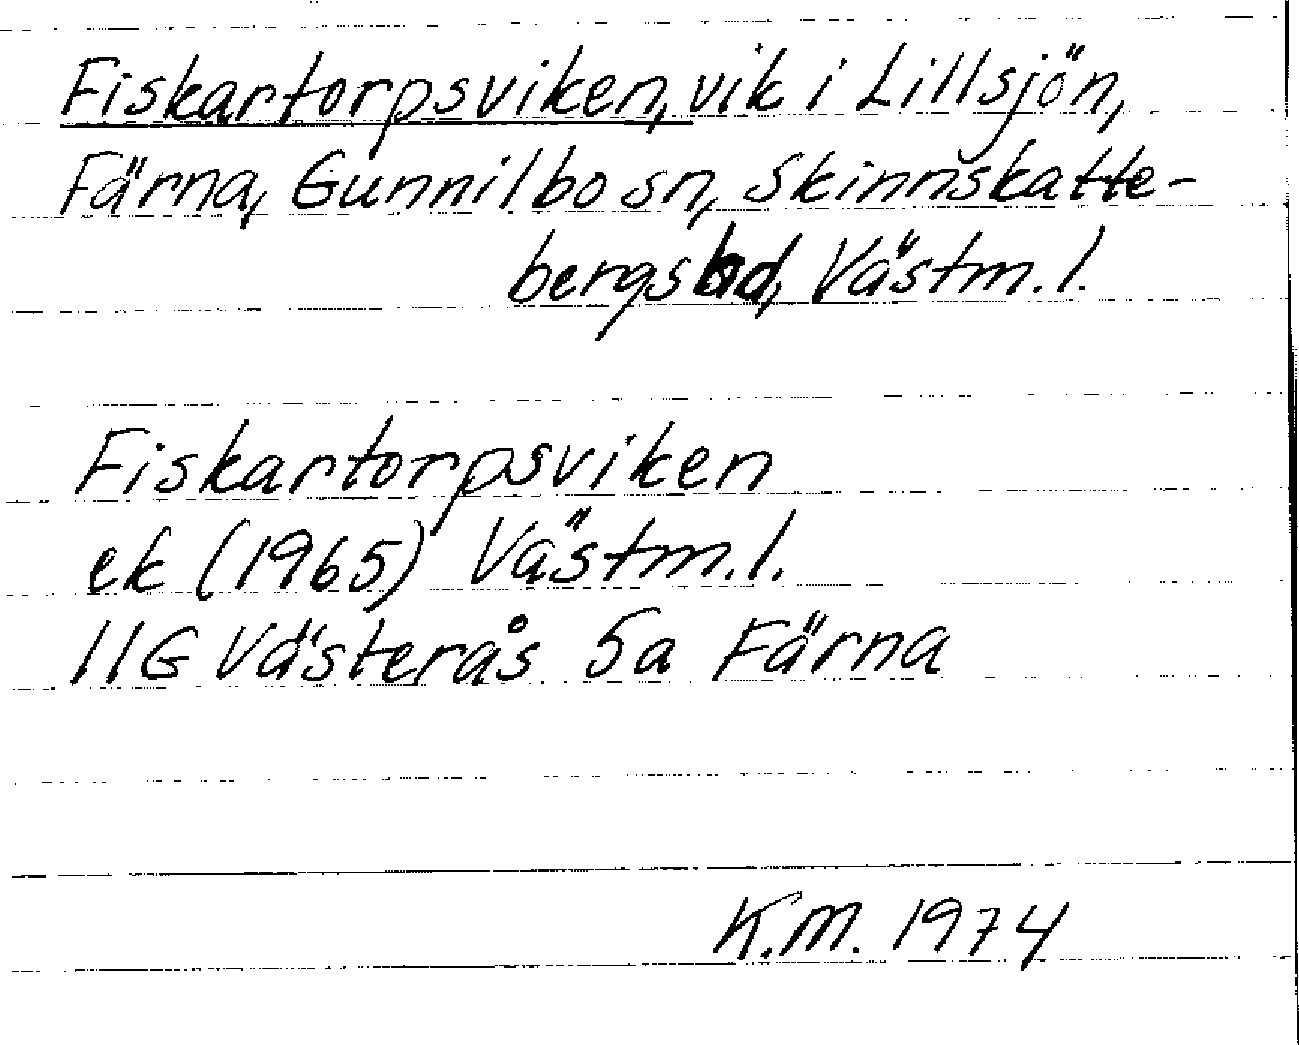 Fiskartorpsviken, vik i Lillsjön,
Färna, Gunnilbo sn, Skinnskatte-
bergs hd, Västm. l.
Fiskartorpsviken
ek (1965) Västm. l.
11G Västerås 5a Färna
K.M. 1974